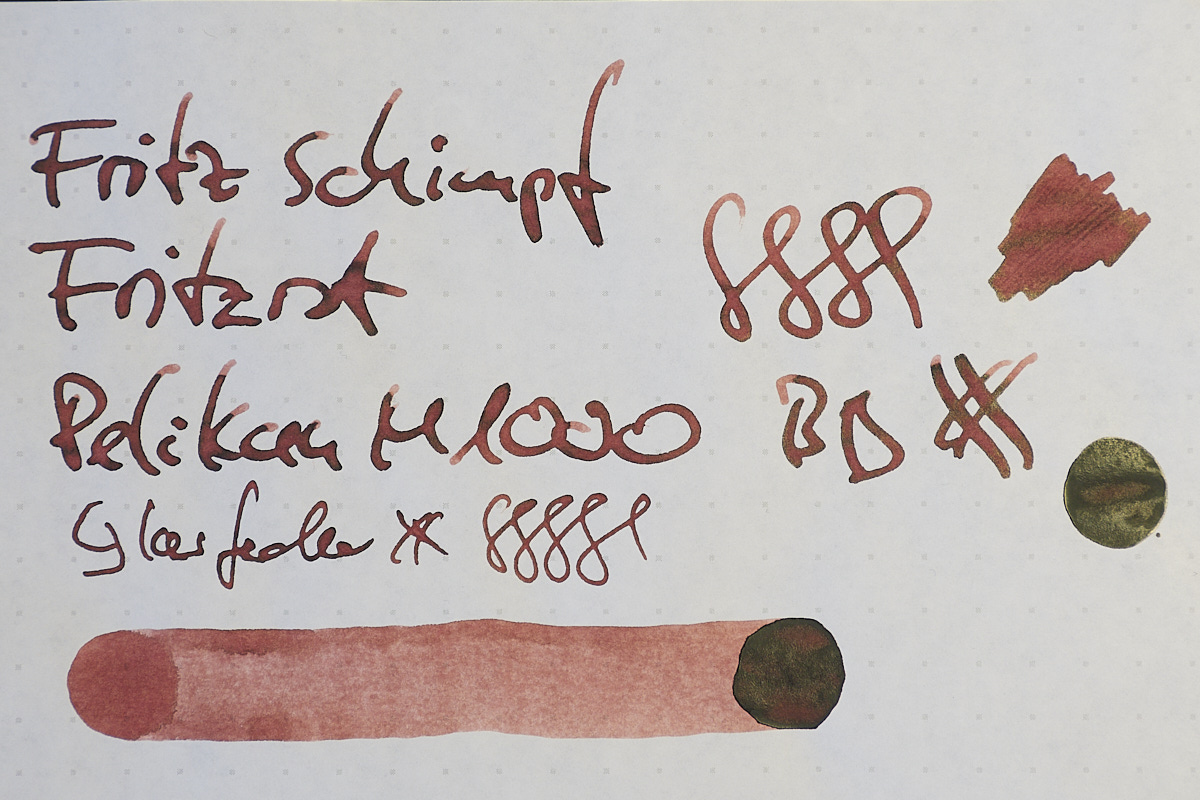 Fritz Schimpf
Fritzrot
Pelikan M1000 BB
Glasfeder